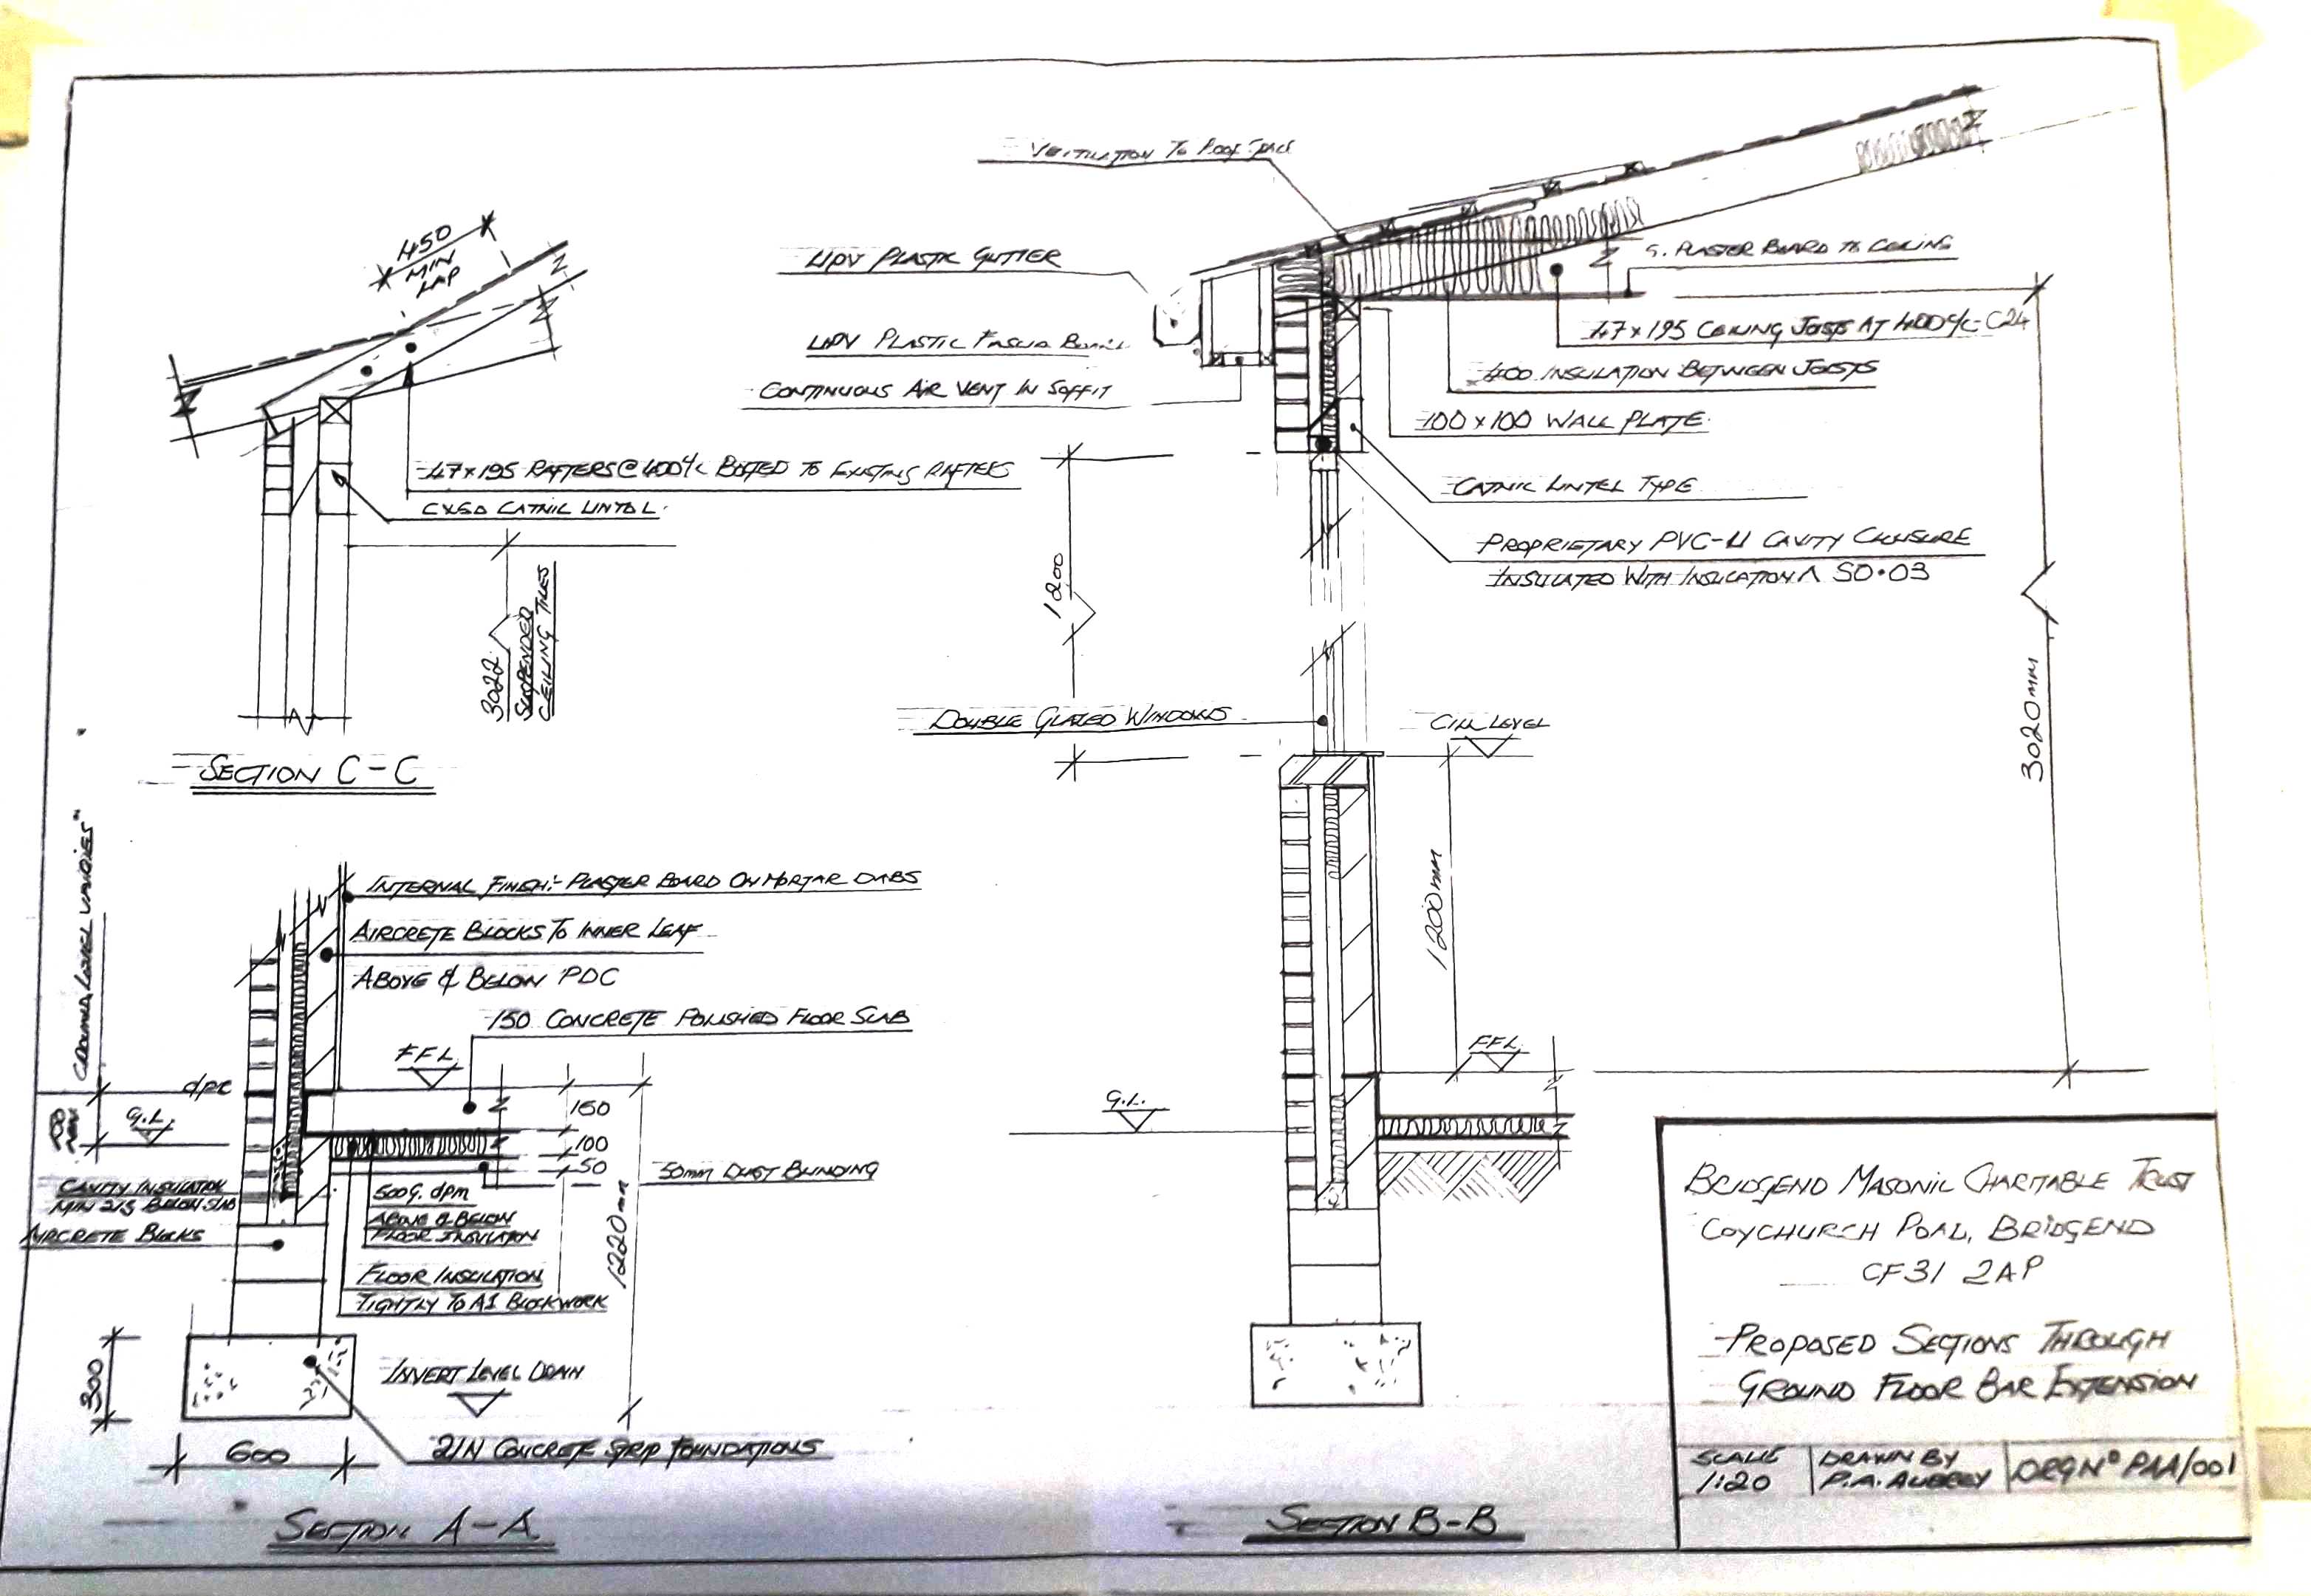 VETILATION TO ROOF SPACE
450
MIN
LAP
UPV PLASTIC GUTTER
G. PLASTER BOARD TO CEILING
UPV PLASTIC FASCIA BOARD
47 x 195 CEILING JOISTS AT 400 c/c C24
CONTINUOUS AIR VENT IN SOFFIT
400 INSULATION BETWEEN JOISTS
100 x 100 WALL PLATE
47 x 195 RAFTERS @ 400 c/c BOLTED TO EXISTING RAFTERS
CATNIC LINTEL TYPE
CX50 CATNIC LINTOL
PROPRIETARY PVC-U CAVITY CLOUSURE
INSULATED WITH INSULATION Λ SO·03
1200
3022
SUSPENDED
CEILING TILES
DOUBLE GLAZED WINDOWS
CILL LEVEL
3020mm
SECTION C-C
INTERNAL FINISH:- PLASTER BOARD ON MORTAR DABS
AIRCRETE BLOCKS TO INNER LEAF
ABOVE & BELOW PDC
1200mm
150 CONCRETE POLISHED FLOOR SLAB
FFL
FFL
dpc
G.L.
G.L.
150
100
50
50mm DUST BLINDING
CAVITY INSULATION
MIN 215 BELOW SLAB
500g. dpm
ABOVE & BELOW
FLOOR INSULATION
AIRCRETE BLOCKS
1220mm
FLOOR INSULATION
TIGHTLY TO A1 BLOCKWORK
300
INVERT LEVEL DRAIN
600
21N CONCRETE STRIP FOUNDATIONS
SECTION A-A
SECTION B-B
BRIDGEND MASONIC CHARITABLE TRUST
COYCHURCH ROAD, BRIDGEND
CF31 2AP
PROPOSED SECTIONS THROUGH
GROUND FLOOR BAR EXTENSION
SCALE
1:20
DRAWN BY
P.A. AUBREY
DRG Nº PAA/001